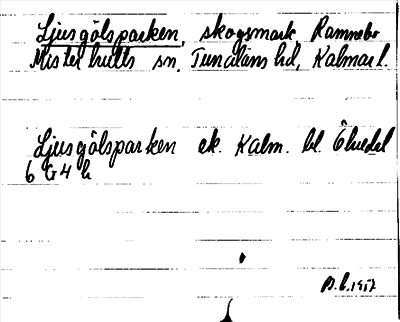 Ljusgölsparken, skogsmark, Ramnebo
Misterhults sn. Tunaläns hd, Kalmar l.
Ljusgölsparken ek. Kalm. bl.
6 G 4 h
1957